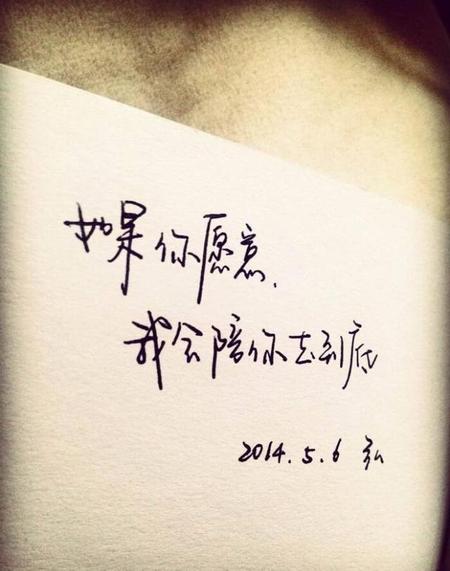 如果你愿意,
我会陪你走到底
2014.5.6 弘